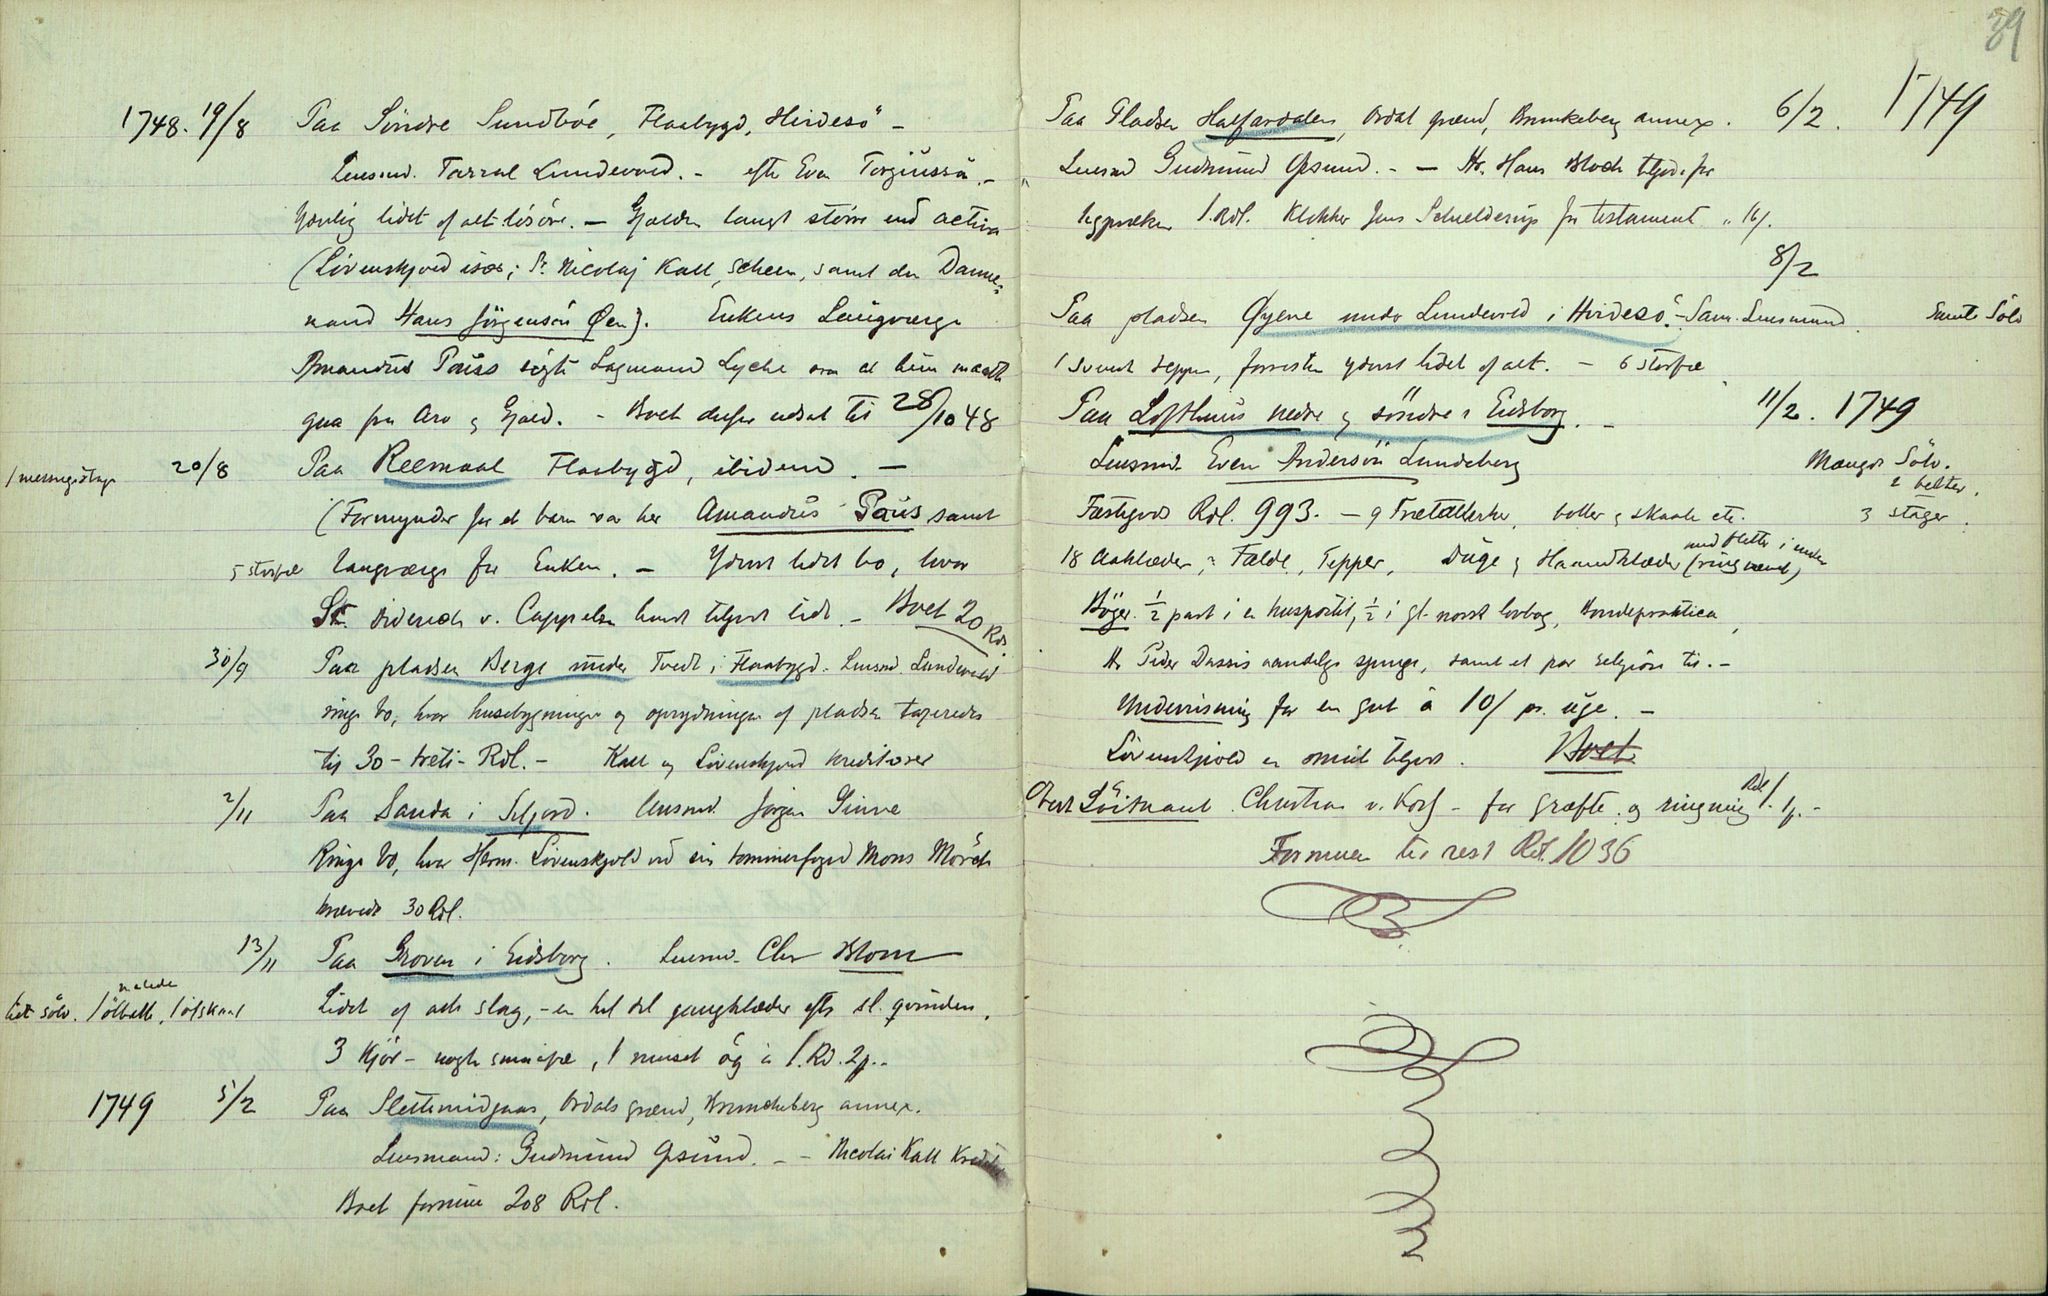 1748. 19/8 Paa Söndre Sundböe, Flaabygd, Hvidesö –
Lensmd. Tarral Lundevald. – efter Even Torgiussön. –
Ynkelig lidet af alt lösöre. – Gjælden langt större end activa
(Lövenskjold især; Sr. Nicolaj Kall, Scheen, samt den Danne-
mand Hans Jörgensön Öen). Enkens Laugværge
Amandus Paus sögte Lagmand Lyche om at hun maatte
gaa fra Arv og Gjæld. – Boet derfor udsat til 28/10 48
1 messingstage 20/8 Paa Reemaal Flaabygd, ibidem. –
(Formynder for et barn var her Amandus Paus samt
5 storfæ laugværge for Enken. – Yderst lidet bo, hvor
Sr. Diderich v. Cappelen havde tilgode lidt. – Boet 20 Rdl.
30/9 Paa pladsen Berge under Tvedt i Flaabygd. Lensmd. Lundevald
ringe bo, hvor husebygninger og oprydningen af pladsen taxeredes
til 30 – treti – Rdl. – Kall og Lövenskjold kreditorer
2/11 Paa Sanda i Seljord. Lensmd. Jörgen Sinne
Ringe bo, hvor Herm. Lövenskjold ved sin tömmerfoged Mons Mörch
krævede 30 Rdl.
13/11 Paa Groven i Eidsborg. Lensmd. Chr Blom
malede
lidt sölv. 1 ölbolle, 1 ölskaal Lidet af alle slag, – en hel del gangklæder efter sl. qvinden.
3 Kjör – nogle smaafæ, 1 muset ög à 1. Rd. 2 .–
1749 5/2 Paa Slettemidgaar, Ordals grænd, Brunkeberg annex.
Lensmand: Gudmund Opsund. – – Nicolai Kall
Boet formue 208 Rdl.
39
Paa Pladsen Halfardalen, Ordal grænd, Brunkeberg annex. 6/2. 1749
Lensmd Gudmund Opsund. – – Hr. Hans Bloch tilgode for
ligpræken 1 Rdl. Klokker Jens Schielderup for testament
8/2
Paa pladsen Öyene under Lundevald i Hvidesö. – Sam. Lensmand. Samt Sölv
1 teppe, forresten yderst lidet af alt. – 6 storfæ
Paa Lofthuus nedre og söndre i Eidsborg. – 11/2. 1749
Lensmd. Even Andersön Lundeberg Mængde Sölv.
2 belter.
Fæstegods Rdl. 993. – 9 Trætallerker, boller og skaale etc. 3 stager.
med fletter i enden
18 Aaklæder, Fælde, Tepper, Duge og Haandklæder (ring vævet)
Böger. ½ part i en huspostil, ½ i gl. norsk lovbog, Bondepraktica,
Hr Peder Dassis aandelige sjunge, samt et par religiöse til. –
Undervisning for en gut à 10/ pr. uge. –
Lövenskjold en smule tilgode. Boets
Oberst Löitnant Christian v. Kors – for græfte og ringning Rdl. 1. 1/. –
Formuen til rest Rdl. 1036